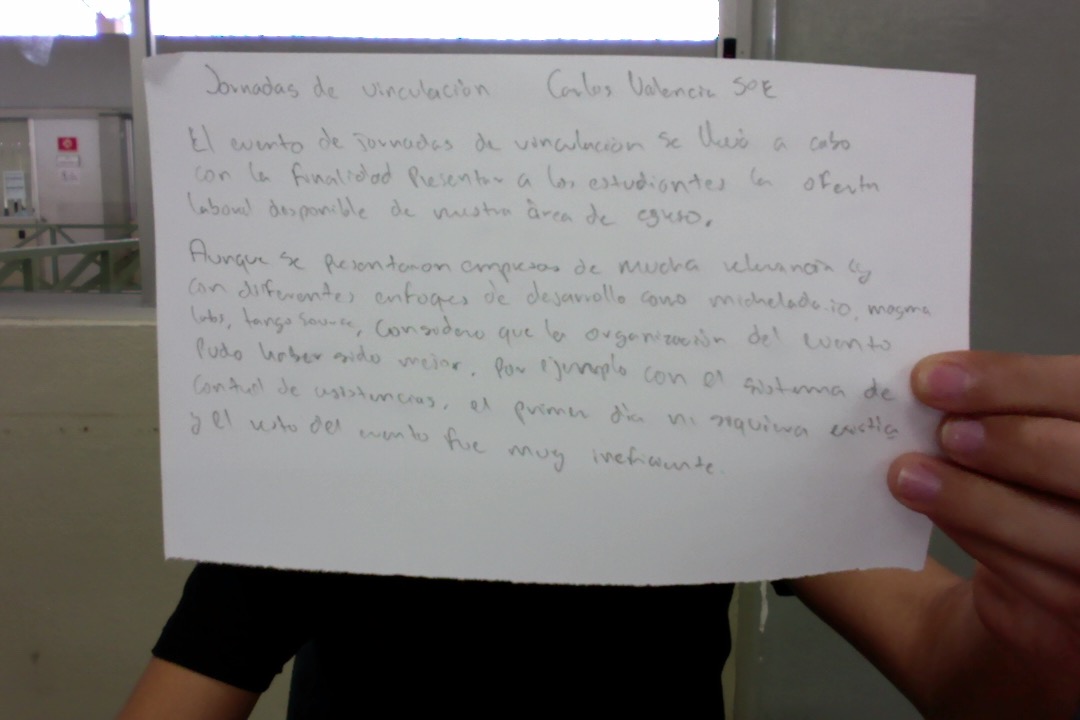 Jornadas de vinculación Carlos Valencia 5°E
El evento de jornadas de vinculación se llevó a cabo
con la finalidad presentar a los estudiantes la oferta
laboral disponible de nuestra área de egreso.
Aunque se presentaron empresas de mucha relevancia y
con diferentes enfoques de desarrollo como michelada.io, magma
labs, tango source, considero que la organización del evento
pudo haber sido mejor. Por ejemplo con el sistema de
control de asistencias, el primer día ni siquiera existía
y el resto del evento fue muy ineficiente.